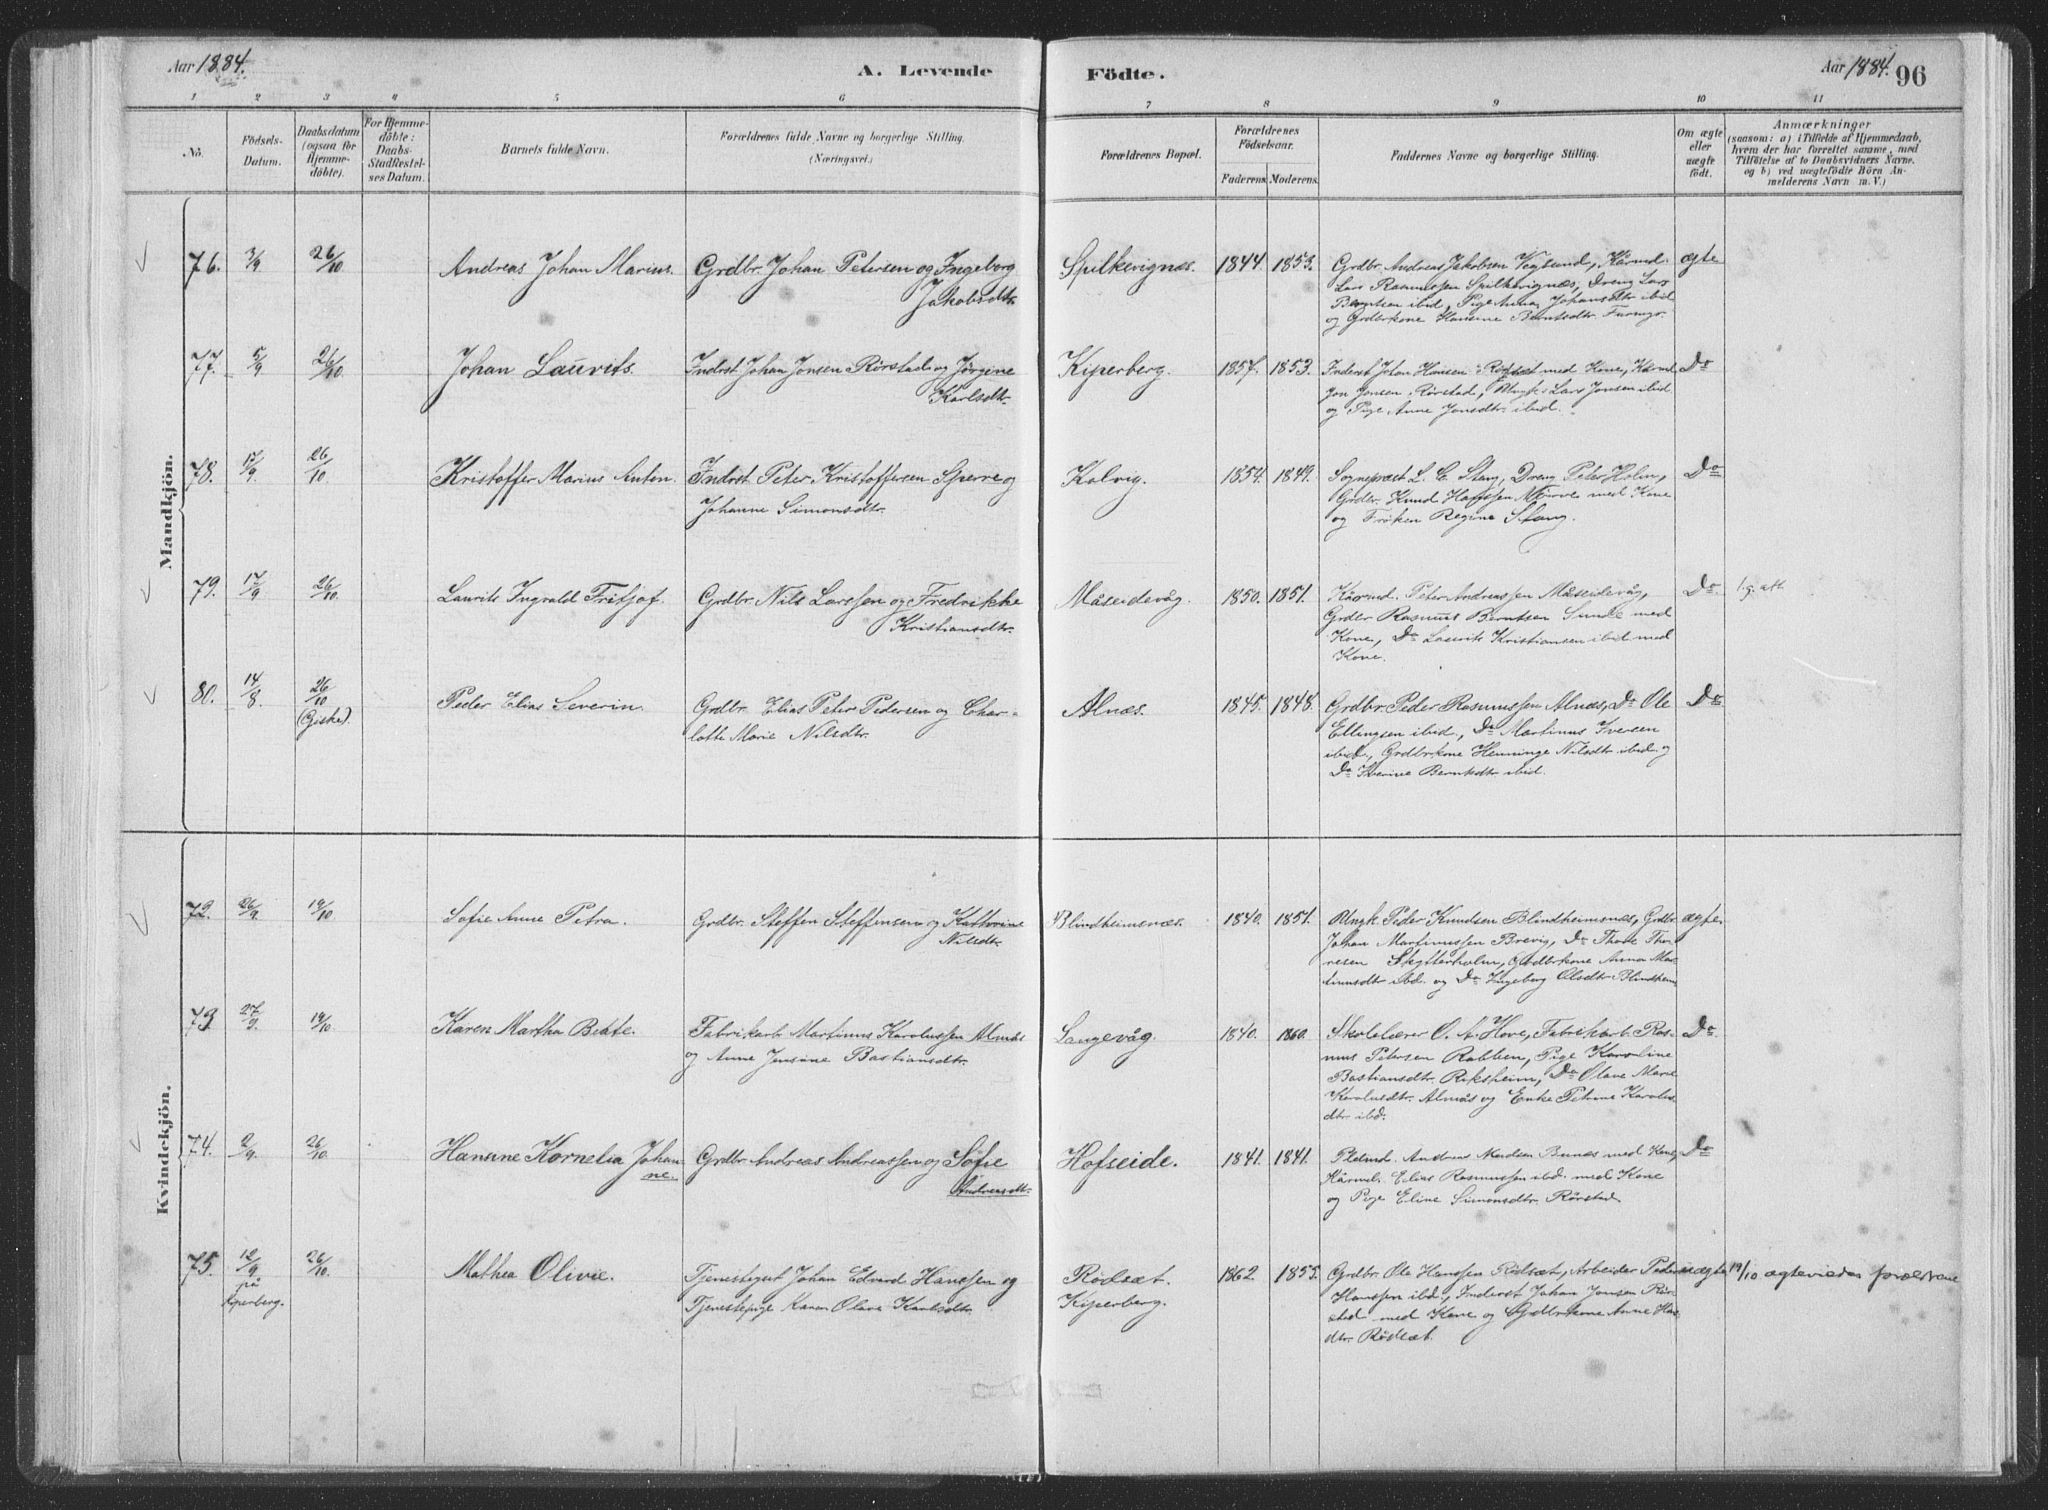 Aar 1884.
A. Levende Födte.
Aar 1884. 96
1 2 3 4 5 6 7 8 9 10 11
No.
Födsels-
Datum.
Daabsdatum
(ogsaa for
Hjemme-
döbte).
For Hjemme-
döbte:
Daabs-
Stadfestel-
ses Datum.
Barnets fulde Navn.
Forældrenes fulde Navne og borgerlige Stilling.
(Næringsvei.)
Forældrenes Bopæl.
Forældrenes
Födselsaar.
Faderens. Moderens.
Faddernes Navne og borgerlige Stilling.
Om ægte
eller
uægte
født.
Anmærkninger
(saasom: a) i Tilfælde af Hjemmedaab,
hvem der har forrettet samme, med
Tilföielse af to Daabsvidners Navne.
og b) ved uægtefödte Börn An-
melderens Navn m. V.)
Mandkjön.
76. 3/9 26/10 Andreas Johan Marius. Grdbr. Johan Petersen og Ingeborg
Jakobsdtr.
Spilkevignæs. 1844. 1853. Grdbr. Andreas Jakobsen Vegsund, Kårmd. ægte
Lars Rasmussen Spilkevignæs, Dreng Lars
Berntsen ibid, Pige Anna Johansdtr ibid
og Grdbrkone Hansine Berntsdtr. Furmyr.
77. 5/9 26/10 Johan Laurits. Indrst Johan Jonsen Rørstad og Jørgine
Karlsdtr.
Kiperberg. 1857. 1853. Inderst Johan Hansen Rødsæt med Kone, Kårmd Do
Jon Jonsen Rørstad, Ungk. Lars Jonsen ibid
og Pige Anne Jonsdtr. ibid.
78. 17/9 26/10 Kristoffer Marius Anton. Indrst Peter Kristoffersen Sperre og
Johanne Simonsdtr.
Kolvig. 1854. 1849. Sognepræst L. C. Stang, Dreng Peter Holm, Do
Grdbr. Knud med Kone
og Frøken Regine Stang.
79. 17/9 26/10 Laurits Ingvald Fritjof. Grdbr. Nils Larssen og Fredrikke
Kristiansdtr.
Måseidevåg. 1850. 1851. Kårmd. Peter Andreassen Måseidevåg, Do
Grdbr Rasmus Berntsen Sunde med
Kone, Do Laurits Kristiansen ibid med
Kone.
80. 14/8. 26/10 (Giske). Peder Elias Severin. Grdbr. Elias Peter Pedersen og Char-
lotte Marie Nilsdtr.
Alnæs. 1845. 1848. Grdbr. Peder Rasmussen Alnæs, Do Ole Do
Ellingsen ibid, Do Martinus Iversen
ibid., Grdbrkone Henninge Nilsdtr ibid. og
Do Iverine Berntsdtr ibid.
Kvindekjön.
72. 26/9. 19/10 Sofie Anne Petra. Grdbr. Steffen Steffensen og Kathrine
Nilsdtr.
Blindheimsnæs. 1840. 1851. Ungk. Peder Knudsen Blindheimsnæs, Grdbr ægte.
Johan Martinussen Brevig, Do Thore Tho-
resen Skytterholm, Grdbrkone Anna Mar-
tinusdtr ibd. og Do Ingeborg Olsdtr Blindheim
73. 27/9. 19/10 Karen Martha Bertte. Fabrikarb. Martinus Karolussen Almås
og Anne Jensine Bastiansdtr.
Langevåg. 1840. 1860. Skolelærer O. A. Hove, Fabrikarb. Ras- Do
mus Petersen Rabben, Pige Karoline
Bastiansdtr. Riksheim, Do Olave Marie
Karolusdtr. Almås og Enke Petrine Karolus-
dtr ibd.
74. 2/9. 26/10. Hansine Kornelia Johan-
ne.
Grdbr Andreas Andreassen og Sofie
Andreasdtr.
Hofseide. 1841. 1841. Andreas Bunæs med Kone, Do
Kårmd. Elias Rasmussen ibd. med Kone
og Pige Eline Simonsdtr. Rørstad.
75. 12/9 på Kiperberg. 26/10. Mathea Olivie. Tjenestegut Johan Edvard Hanssen og
Tjenestepige Karen Olave Karlsdtr.
Rødsæt. Kiperberg. 1862. 1855. Grdbr. Ole Hanssen Rødsæt, Arbeider Peder uægte 19/10 ægteviedes forældrene
Hanssen ibd., Inderst Johan Jonsen Rør-
stad med Kone og Grdbrkone Anne Has-
dtr. Rødsæt.